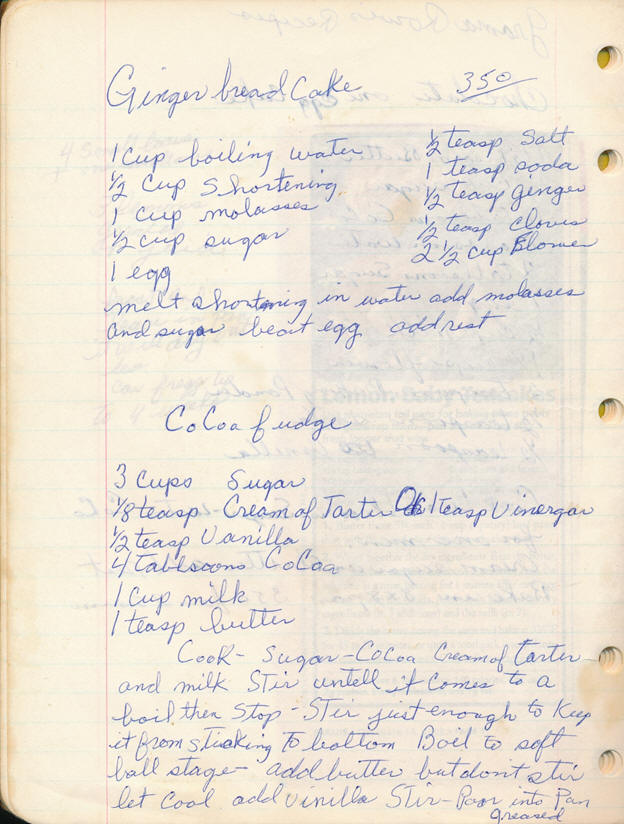 Ginger bread Cake 350
1 Cup boiling water
½ Cup shortening
1 cup molasses
½ cup sugar
1 egg
½ teasp Salt
1 teasp soda
½ teasp ginger
½ teasp cloves
2 ½ cup Flower
melt shortening in water add molasses
and sugar beat egg add rest
CoCoa fudge
3 Cups Sugar
⅛ teasp Cream of Tarter OR 1 teasp Vinergar
½ teasp Vanilla
4 Tablsoons CoCoa
1 Cup milk
1 teasp butter
Cook - Sugar - CoCoa Cream of tarter -
and milk STir untell it comes to a
boil then Stop - STir just enough to Keep
it from sticking To bottom Boil to soft
ball stage - add butter but don't stir
let Cool add vinilla STir - Poor into Pan
greased